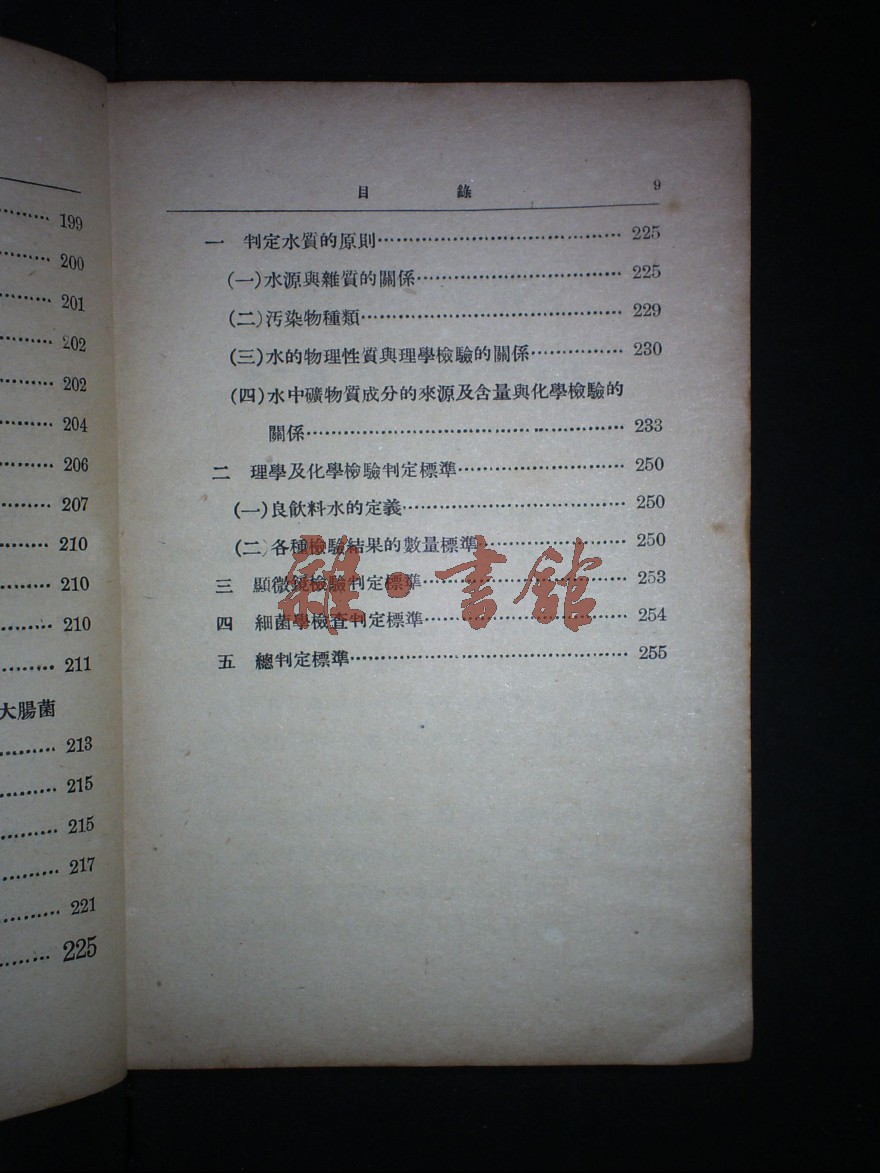 199
200
201
202
202
204
206
207
210
210
210
211
大腸菌
213
215
215
217
221
225
目 錄 9
一 判定水質的原則 225
(一)水源與雜質的關係 225
(二)汚染物種類 229
(三)水的物理性質與理學檢驗的關係 230
(四)水中礦物質成分的來源及含量與化學檢驗的
關係 233
二 理學及化學檢驗判定標準 250
(一)良飲料水的定義 250
(二)各種檢驗結果的數量標準 250
三 顯微鏡檢驗判定標準 253
四 細菌學檢查判定標準 254
五 總判定標準 255
雜·書館